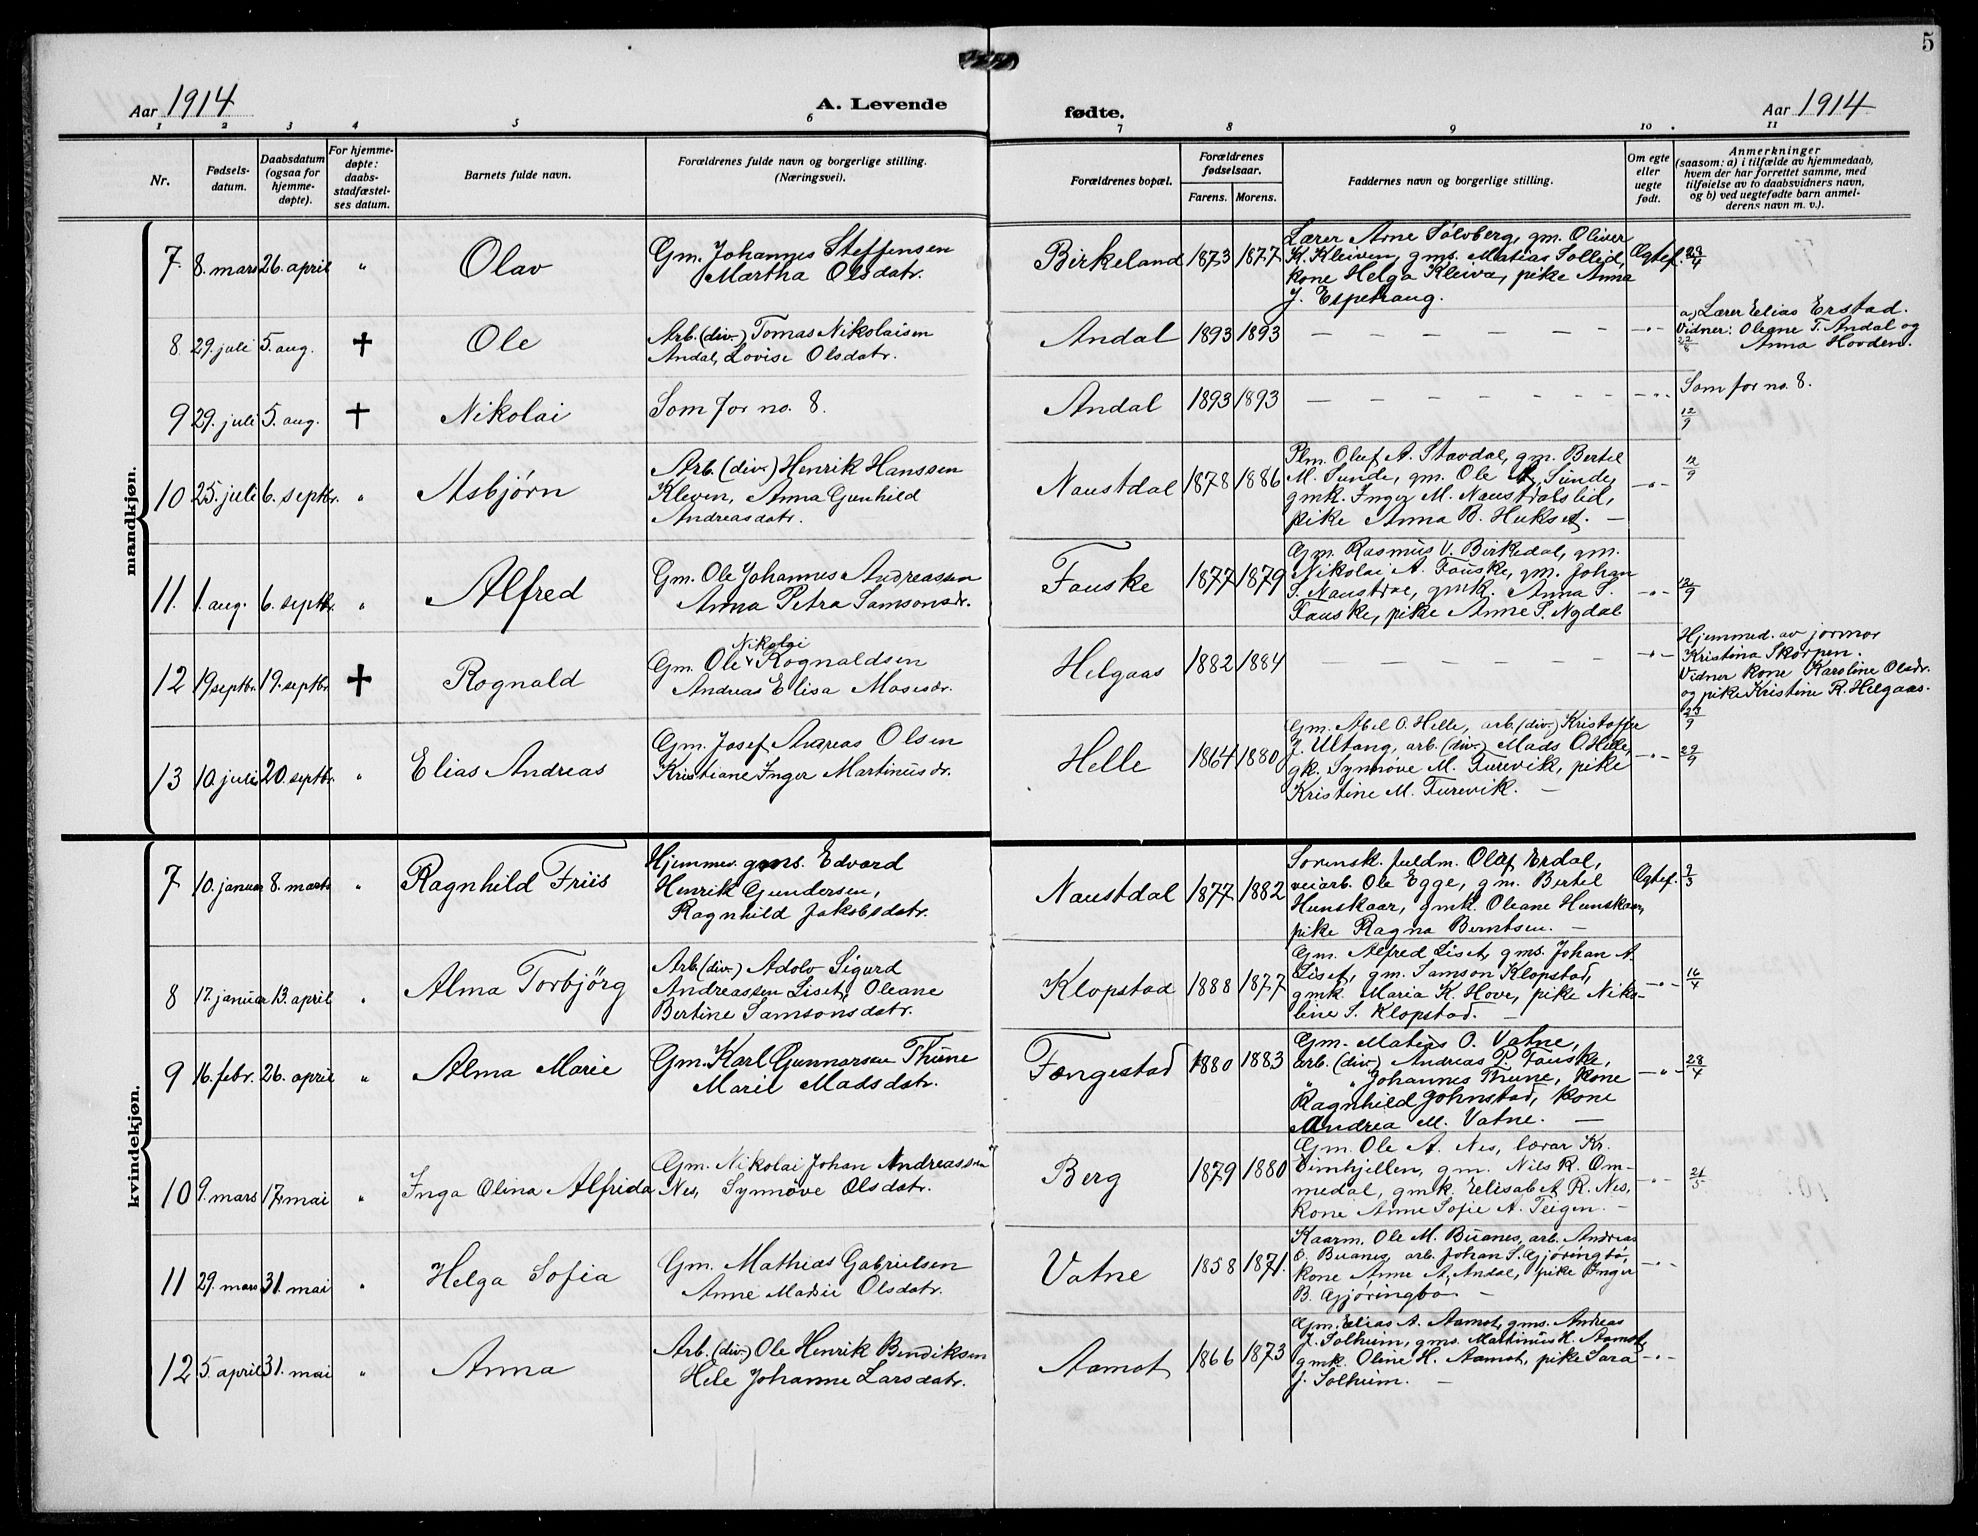 5
Aar 1914 A. Levende fødte. Aar 1914
1 2 3 4 5 6 7 8 9 10 11
Nr.
Fødsels-
datum.
Daabsdatum
(ogsaa for
hjemme-
døpte).
For hjemme-
døpte:
daabs-
stadfæstel-
ses datum.
Barnets fulde navn.
Forældrenes fulde navn og borgerlige stilling.
(Næringsvei).
Forældrenes bopæl.
Forældrenes
fødselsaar.
Farens. Morens.
Faddernes navn og borgerlige stilling.
Om egte
eller
uegte
født.
Anmerkninger
(saasom: a) i tilfælde av hjemmedaab,
hvem der har forrettet samme, med
tilføielse av to daabsvidners navn,
og b) ved uegtefødte barn anmel-
derens navn m. v.).
mandkjøn.
7. 8. mars 26. april " Olav
Gm. Johannes Steffensen
Martha Olsdatr.
Birkeland 1873 1877
Lærer Arne Sølvberg, gm. Oliver
K. Kleiven, gms. Matias Sollid,
kone Helga Kleiva, pike Anna
J. Espetrang.
Egtef. 28/4
8 29. juli 5. aug. † Ole
Arb. (div.) Tomas Nikolaisen
Andal, Lovise Olsdatr.
Andal 1893 1893 — — — — — — — -"-
a) Lærer Elias Erstad.
Vidner: Oleane T. Andal og
Anna Hovden.
9 29. juli 5. aug. † Nikolai
Som for no. 8.
Andal 1893 1893 — — — — — — — -"-
Som for no. 8.
12/9
10 25. juli 6. septbr. " Asbjørn
Arb. (div.) Henrik Hanssen
Kleven, Anna Gunhild
Andreasdatr.
Naustdal 1878 1886
Plm. Oluf A. Stavdal, gm. Bertel
M. Sunde, gm. Ole A. Sunde,
gmk. Inger M. Naustdalslid,
pike Anna B. Hukset. —
-"- 12/9
11. 1. aug. 6. septbr. " Alfred
Gm. Ole Johannes Andreassen
Anna Petra Samsonsdr.
Fauske 1877 1879
Gm. Rasmus V. Birkedal, gm.
Nikolai A. Fauske, gm. Johan
S. Naustdal, gmk. Anna S.
Fauske, pike Anne S. Nydal
-"- 12/9
12 19 septbr. 19. septbr. † Rognald
Nikolai
Gm. Ole Rognaldsen
Andreas Elisa Mosesdr.
Helgaas 1882 1884 — — — — — — — -"-
Hjemmed. av jormor
Kristina Skorpen.
Vidner kone Karoline Olsdr.
og pike Kristine R. Helgaas.
23/9
13 10. juli 20. septbr. " Elias Andreas
Gm. Josef Andreas Olsen
Kristiane Inger Martinusdr.
Helle 1864 1880
Gm. Abel O. Helle, arb. (div.) Kristoffer
J. Ultang, arb. (div.) Mads O. Helle,
gk. Synnøve M. Furevik, pike
Kristine M. Furevik. —
-"- 29/9
kvindekjøn.
7 10. januar 8. marts " Ragnhild Friis
Hjemmes. gms. Edvard
Henrik Gundersen,
Ragnhild Jakobsdatr.
Naustdal 1877 1882
Sorensk. fuldm. Oluf Erdal,
veiarb. Ole Egge, gm. Bertel
Hunskaar, gmk. Oleane Hunskaar,
pike Ragna Berntsen. —
Egtef. 9/3
8 17. januar 13. april " Alma Torbjörg
Arb. (div.) Adolv Sigurd
Andreassen Liset, Oleane
Bertine Samsonsdatr.
Klopstad 1888 1877
Gm. Alfred Liset, gms. Johan A.
Liset, gm. Samson Klopstad,
gmk. Maria K. Hove, pike Niko-
line S. Klopstad. —
-"- 16/4
9 16. febr. 26. april " Alma Marie
Gm. Karl Gunnarsen Thune
Marie Madsdatr.
Fængestad 1880 1883
Gm. Matias O. Vatne,
arb. (div.) Andreas P. Fauske,
" " Johannes Thune, kone
Ragnhild Johnstad, kone
Andrea M. Vatne. —
-"- 28/4
10 9. mars 17. mai " Inga Olina Alfrida
Gm. Nikolai Johan Andreassen
Nes, Synnøve Olsdatr.
Berg 1879 1880
Gm. Ole A. Nes, lærar Kr.
Eimhjellen, gm. Nils R. Om-
medal, gmk. Elisabet R. Nes,
kone Anne Sofie A. Teigen. —
-"- 21/5
11 29. mars 31. mai " Helga Sofia
Gm. Mathias Gabrielsen
Anne Marie Olsdatr.
Vatne 1858 1871.
Kaarm. Ole M. Buanes, arb. Andreas
O. Buanes, arb. Johan S. Gjøringbø,
kone Anne A. Andal, pike Inger
B. Gjøringbø. —
-"-
12 5. april 31. mai " Anna
Arb. (div.) Ole Henrik Bendiksen
Hele Johanne Larsdatr.
Aamot 1866 1873
Gm. Elias A. Aamot, gms. Andreas
J. Solheim, gms. Martinus H. Aamot,
gmk. Oline H. Aamot, pike Sara
J. Solheim. —
-"-